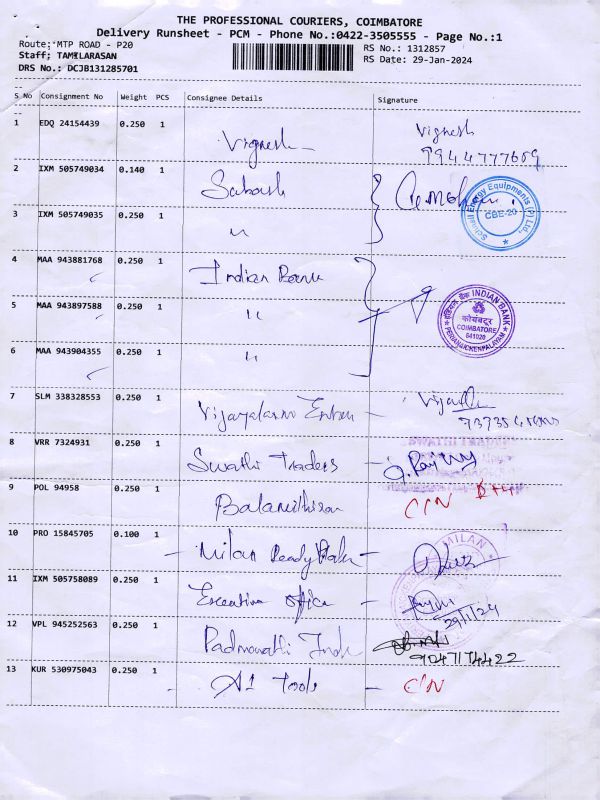 THE PROFESSIONAL COURIERS, COIMBATORE
Delivery Runsheet - PCM - Phone No.:0422-3505555 - Page No.:1
Route: MTP ROAD - P20
RS No.: 1312857
Staff; TAMILARASAN
RS Date: 29-Jan-2024
DRS No.: DCJB131285701
S No Consignment No Weight PCS Consignee Details Signature
1 EDQ 24154439 0.250 1 Vignesh Vignesh
9944777609
2 IXM 505749034 0.140 1
Schnell Energy Equipments (P) Ltd.,
CBE-20
3 IXM 505749035 0.250 1 "
4 MAA 943881768 0.250 1 Indian Bank
5 MAA 943897588 0.250 1 "
इंडियन बैंक INDIAN BANK
कोयंबटूर
COIMBATORE
641020
PERIANAICKENPALAYAM
6 MAA 943904355 0.250 1 "
7 SLM 338328553 0.250 1
8 VRR 7324931 0.250 1 Swathi Traders -
SWATHI TRADERS
9 POL 94958 0.250 1 C/N
10 PRO 15845705 0.100 1 - Milan Ready -
MILAN
11 IXM 505758089 0.250 1 Executive office
29/1/24
12 VPL 945252563 0.250 1 Padmavathi
9047174422
13 KUR 530975043 0.250 1 A1 Tools - C/N